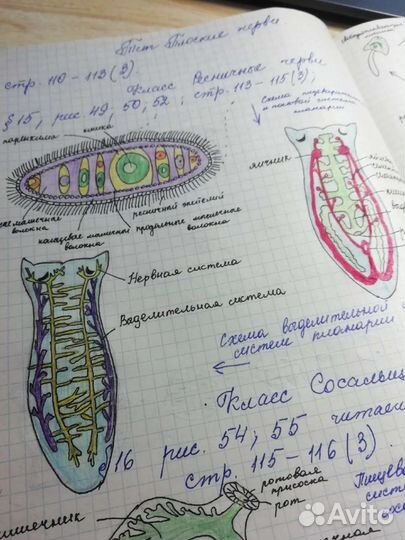 Тип Плоские черви
стр. 110-113(3).
Класс Ресничные черви
§15, рис. 49, 50, 52; стр. 113-115(3);
кишка
паренхима
Схема
и половой системы
планарии
яичник
ресничный эпителий
волокна
кольцевые мышечные
волокна
продольные мышечные
волокна
Нервная система
Выделительная система
Схема выделительной
систем планарии
Класс Сосальщ
§16 рис. 54, 55 читаем
стр. 115-116(3).
ротовая
присоска
рот
Пищева
систе
сосо
кишечник
Avito